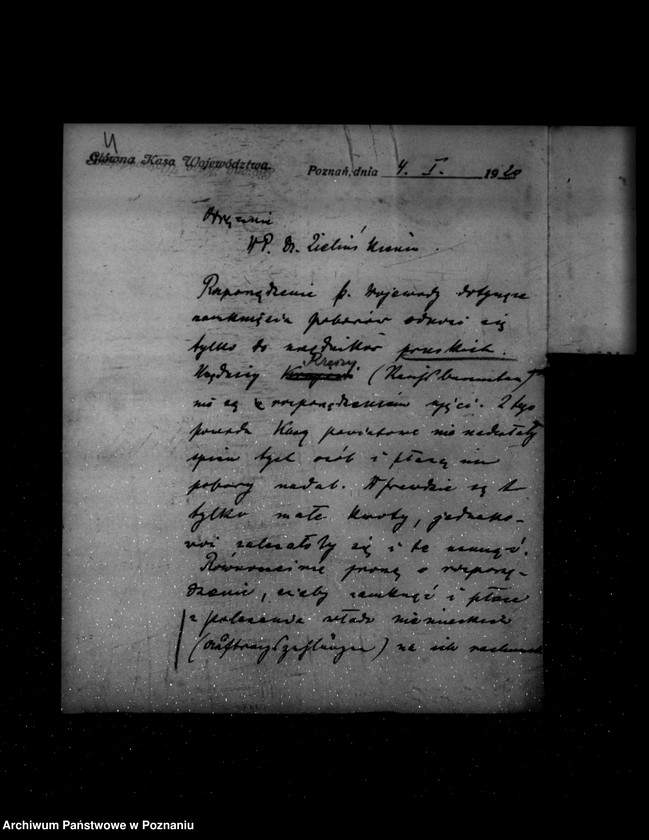 4
Główna Kasa Województwa.
Poznań, dnia 4. I. 1920
Odręcznie
WP. Dr. Zieliński
Rozporządzenie p. Wojewody dotyczące
zamknięcia poborów odnosi się
tylko do urzędników pruskich.
Urzędnicy Rzeszy (Reichsbeamten)
nie są rozporządzeniem objęci. Z tego
powodu Kasy powiatowe nie nadesłały
spisu tych osób i płacą im
pobory nadal. Wprawdzie są to
tylko małe kwoty, jednako-
woż należałoby się i te zamknąć.
Równocześnie proszę o rozporzą-
dzenie, żeby zamknąć i płace
z polecenia władz niemieckich
(Auftragszahlungen) na ich rachunek
Archiwum Państwowe w Poznaniu